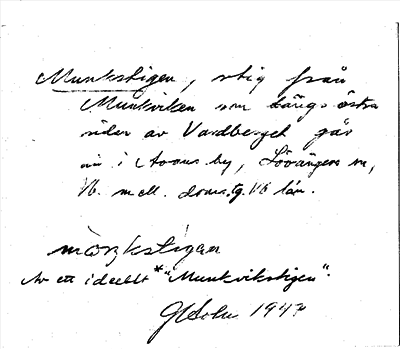 Munkstigen, stig från
Munkviken som längs östra
sidan av Vardberget går
in i Avans by, Lövångers sn,
Vb. mell. doms.tg. Vb län.
mòŋkstigan
Av ett ideellt *"Munkvikstigen".
1947